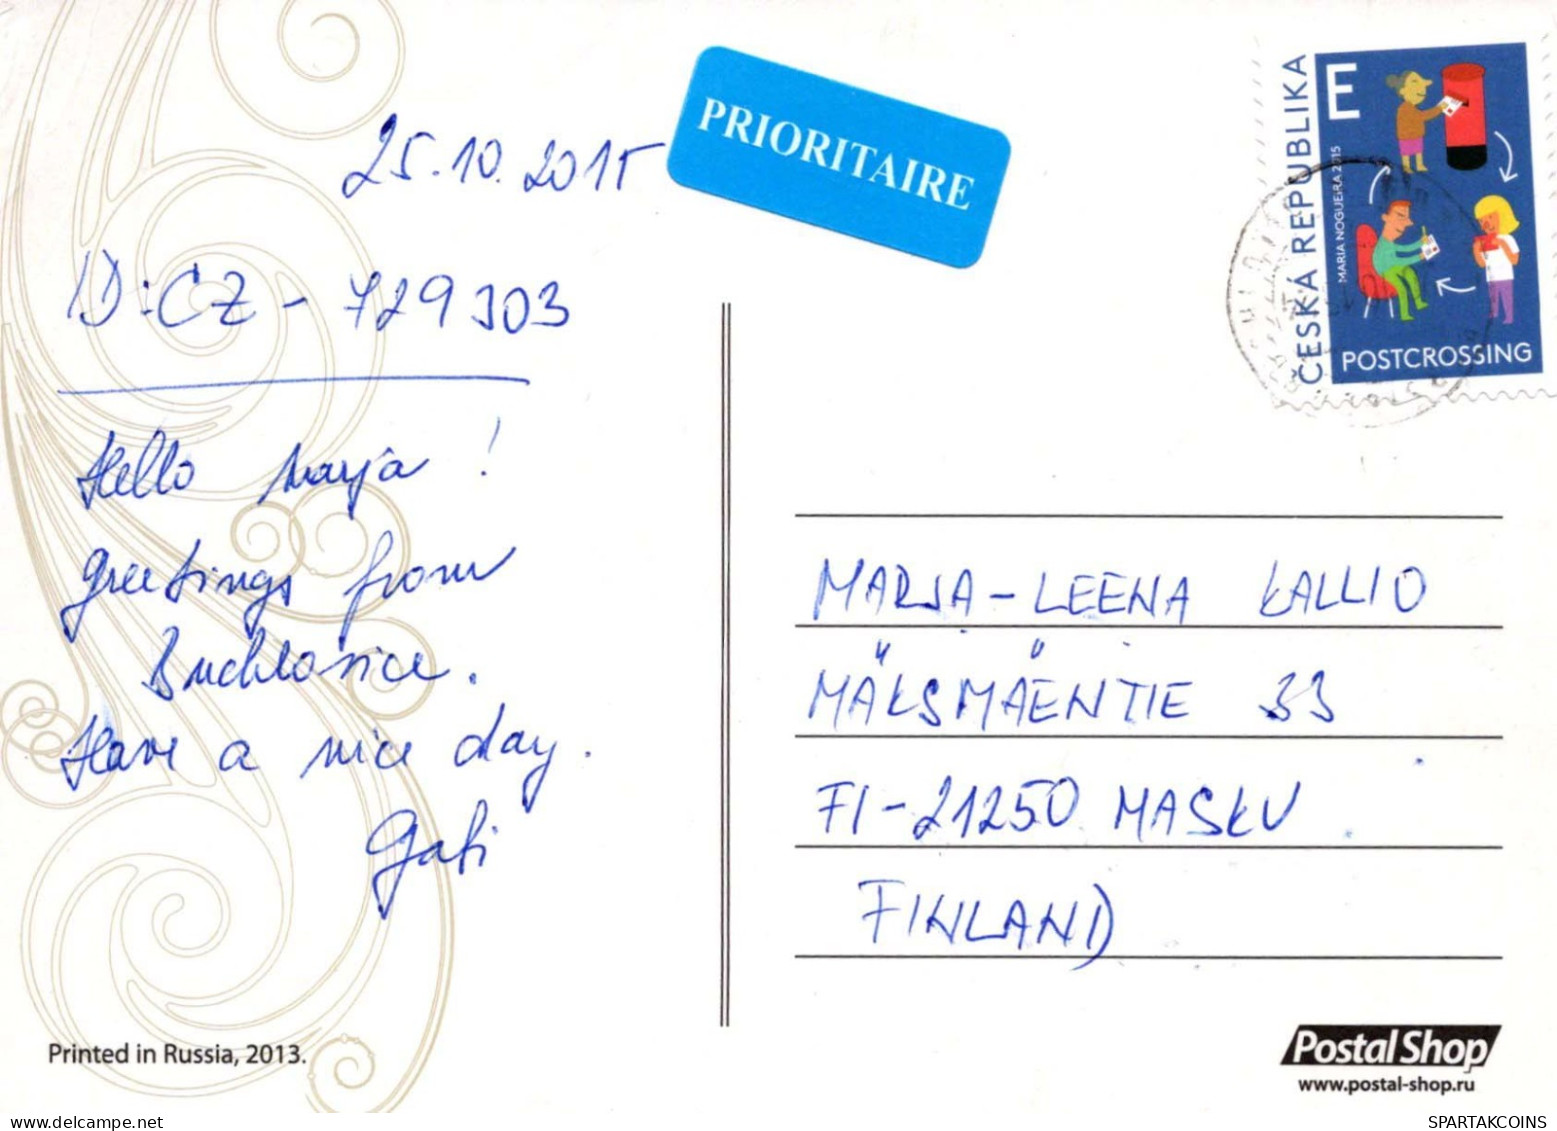 25.10.2015
ID: CZ - 729303
Hello Marja!
Greetings from
Buchlovice.
Have a nice day.
Gabi
PRIORITAIRE
E
ČESKÁ REPUBLIKA
MARIA NOGUERA 2015
POSTCROSSING
MARJA-LEENA KALLIO
MÄKSMÄENTIE 33
FI-21250 MASKU
FINLAND
Printed in Russia, 2013.
Postal Shop
www.postal-shop.ru
SPARTAKCOINS